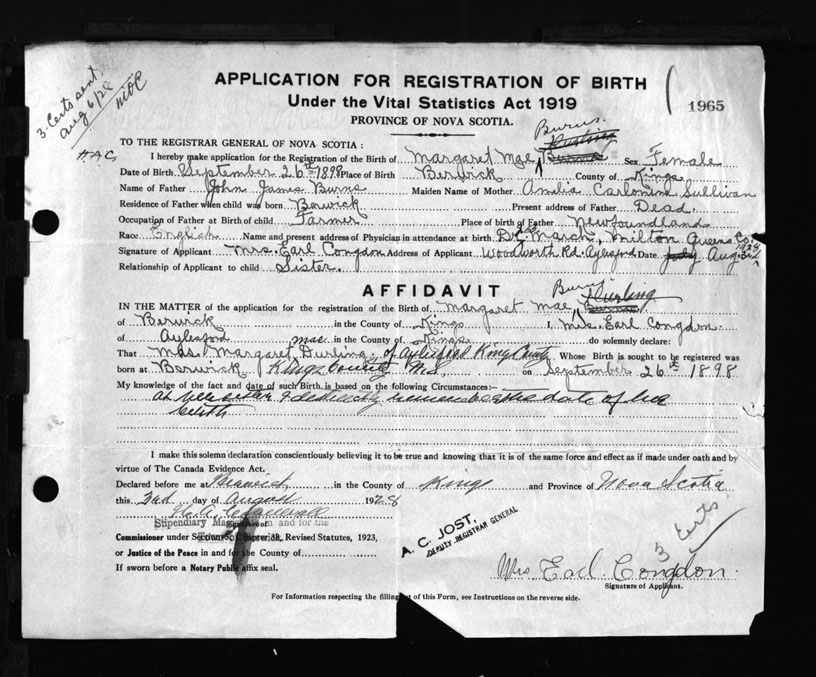 3-Certs sent
Aug 6/28
APPLICATION FOR REGISTRATION OF BIRTH
Under the Vital Statistics Act 1919
1965
PROVINCE OF NOVA SCOTIA.
Burns.
TO THE REGISTRAR GENERAL OF NOVA SCOTIA:
I hereby make application for the Registration of the Birth of Margaret Mae Burns Sex Female
Date of Birth September 26th 1898 Place of Birth Berwick County of Kings
Name of Father John James Burns Maiden Name of Mother Amelia Sullivan
Residence of Father when child was born Berwick Present address of Father Dead.
Occupation of Father at Birth of child Farmer Place of birth of Father Newfoundland
Race English Name and present address of Physician in attendance at birth Dr. Marsh, Milton Queens Co.
Signature of Applicant Mrs. Earl Congdon Address of Applicant Woodworth Rd. Aylesford Date July Aug.
Relationship of Applicant to child Sister.
AFFIDAVIT
Burns
IN THE MATTER of the application for the registration of the Birth of Margaret Mae Durling Burns
of Berwick in the County of Kings I, Mrs. Earl Congdon.
of Aylesford in the County of Kings do solemnly declare:
That Mrs. Margaret Durling, of Aylesford Kings County Whose Birth is sought to be registered was
born at Berwick Kings County N.S. on September 26th 1898
My knowledge of the fact and date of such Birth is based on the following Circumstances:—
date of her
birth
I make this solemn declaration conscientiously believing it to be true and knowing that it is of the same force and effect as if made under oath and by
virtue of The Canada Evidence Act.
Declared before me at Berwick in the County of Kings and Province of Nova Scotia
this 3rd day of August 1928
Stipendiary in and for the
Commissioner under Revised Statutes, 1923,
or Justice of the Peace in and for the County of
If sworn before a Notary Public affix seal.
A. C. JOST,
DEPUTY REGISTRAR GENERAL
3 Certs
Mrs Earl Congdon.
Signature of Applicant.
For Information respecting the filling of this Form, see Instructions on the reverse side.